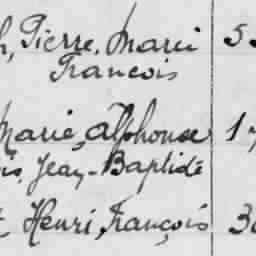 Pierre, Marie
Francois
Marie, Alphonse 1
Jean-Baptiste
Henri, François 3